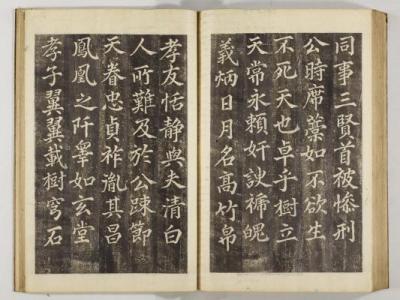 同事三賢首被慘刑
公時席藁如不欲生
不死天也卓乎樹立
天常永賴奸諛褫魄
義炳日月名高竹帛
孝友恬静與夫清白
人所難及於公踈節
天眷忠貞祚胤其昌
鳳凰之阡睾如玄堂
孝子翼翼載樹穹石